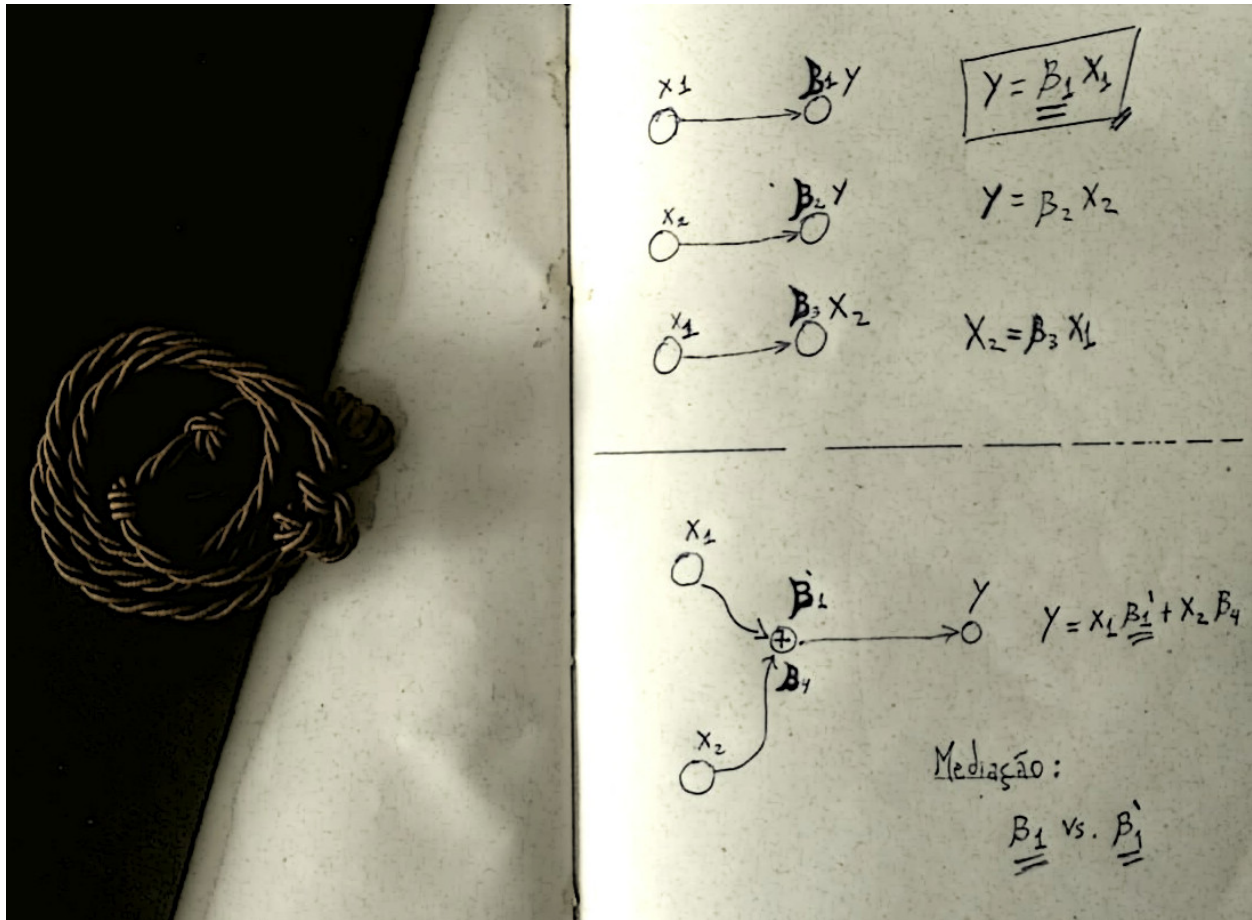 X1 β1 Y Y = β1 X1
X2 β2 Y Y = β2 X2
X1 β3 X2 X2 = β3 X1
X1
β1' Y
+ Y = X1 β1' + X2 β4
β4
X2
Mediação:
β1 vs. β1'